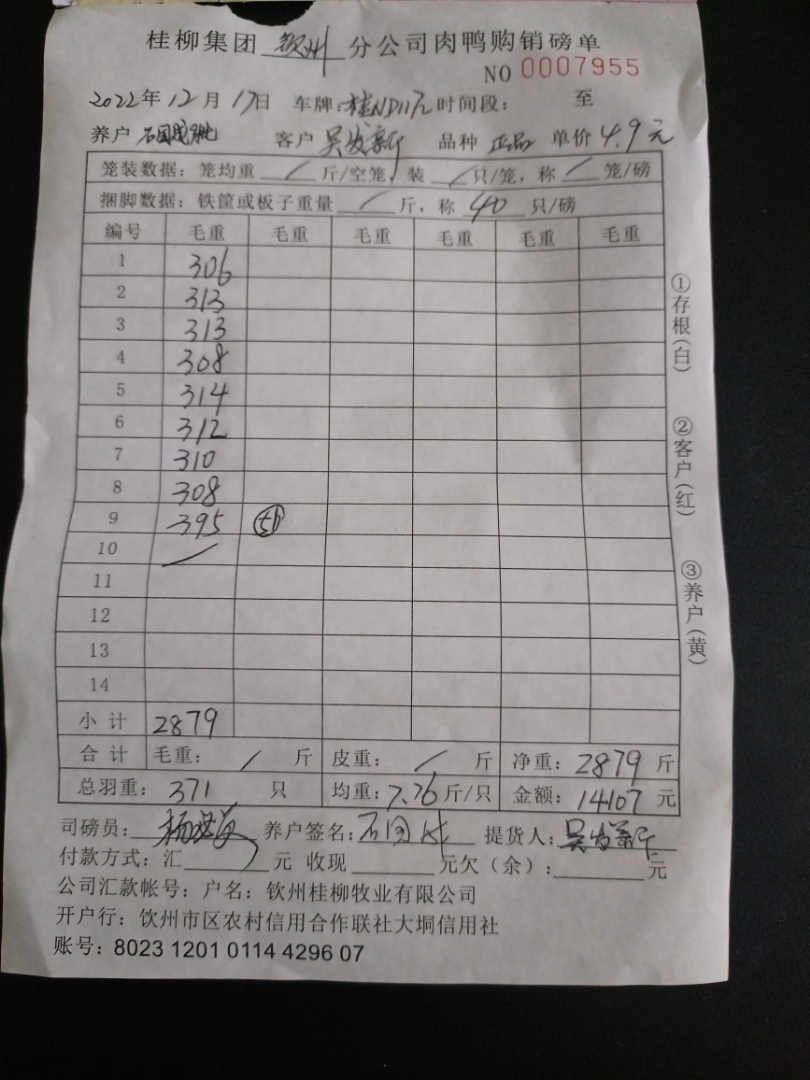 桂柳集团 钦州 分公司肉鸭购销磅单
NO 0007955
2022年12月17日 车牌: 时间段: 至
养户 客户 吴发新 品种 正品 单价 4.9元
笼装数据: 笼均重 / 斤/空笼, 装 / 只/笼, 称 / 笼/磅
捆脚数据: 铁筐或板子重量 / 斤, 称 40 只/磅
编号 毛重 毛重 毛重 毛重 毛重 毛重
1 306
2 313
3 313
4 308
5 314
6 312
7 310
8 308
9 395 51
10 /
11
12
13
14
小计 2879
合计 毛重: / 斤 皮重: / 斤 净重: 2879 斤
总羽重: 371 只 均重: 7.76 斤/只 金额: 14107 元
司磅员: 养户签名: 石国成 提货人: 吴发新
付款方式: 汇 元 收现 元欠(余): 元
公司汇款帐号: 户名: 钦州桂柳牧业有限公司
开户行: 钦州市区农村信用合作联社大垌信用社
账号: 8023 1201 0114 4296 07
①存根(白)
②客户(红)
③养户(黄)